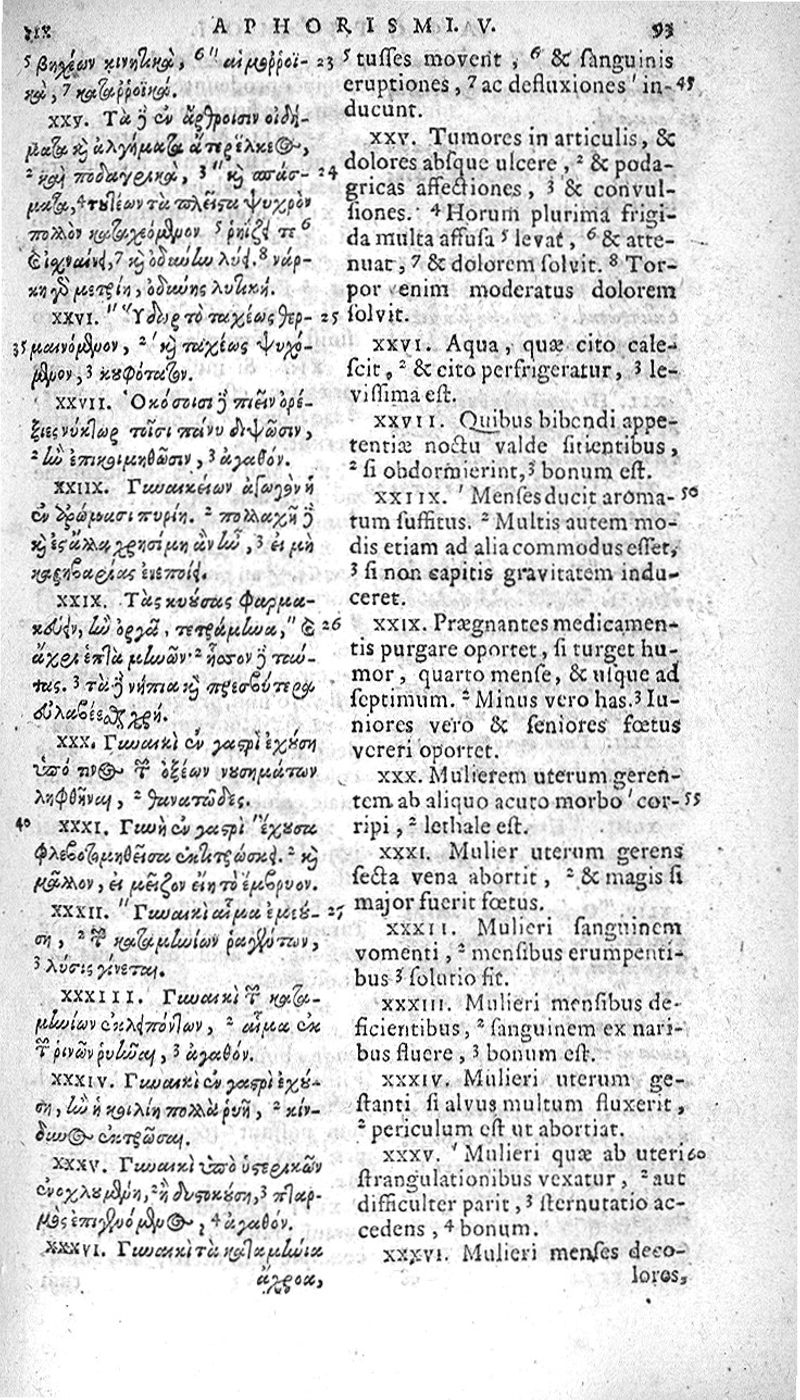 APHORISMI. V. 93
5 βηχέων κινητικὰ, 6 " αἱμοῤῥοϊ- 23
κὰ, 7 καταῤῥοϊκά.
XXV. Τὰ δὲ ἐν ἄρθροισιν οἰδή-
ματα καὶ ἀλγήματα ἄτερ ἕλκεος,
2 καὶ ποδαγρικὰ, 3 " καὶ σπάσ- 24
ματα, 4 τουτέων τὰ πλεῖστα ψυχρὸν
πολλὸν καταχεόμενον 5 ῥηΐζει τε 6
καὶ ἰσχναίνει, 7 καὶ ὀδύνην λύει. 8 νάρ-
κη γὰρ μετρίη, ὀδύνης λυτική.
XXVI. " Ὕδωρ τὸ ταχέως θερ- 25
35 μαινόμενον, 2 ' καὶ ταχέως ψυχό-
μενον, 3 κουφότατον.
XXVII. Ὁκόσοισι δὲ πιεῖν ὀρέ-
ξιες νύκτωρ τοῖσι πάνυ διψῶσιν,
2 ἢν ἐπικοιμηθῶσιν, 3 ἀγαθόν.
XXIIX. Γυναικείων ἀγωγὸν ἡ
ἐν ἀρώμασι πυρίη. 2 πολλαχῆ δὲ
καὶ ἐς ἄλλα χρησίμη ἂν ἦν, 3 εἰ μὴ
καρηβαρίας ἐνεποίει.
XXIX. Τὰς κυούσας φαρμα-
κεύειν, ἢν ὀργᾷ, τετράμηνα, " καὶ 26
ἄχρι ἑπτὰ μηνῶν· 2 ἧσσον δὲ ταύ-
τας. 3 τὰ δὲ νήπια καὶ πρεσβύτερα
εὐλαβέεσθαι χρή.
XXX. Γυναικὶ ἐν γαστρὶ ἐχούσῃ
ὑπό τινος τῶν ὀξέων νουσημάτων
ληφθῆναι, 2 θανατῶδες.
40 XXXI. Γυνὴ ἐν γαστρὶ ' ἔχουσα
φλεβοτομηθεῖσα ἐκτιτρώσκει. 2 καὶ
μᾶλλον, εἰ μεῖζον εἴη τὸ ἔμβρυον.
XXXII. " Γυναικὶ αἷμα ἐμεύ- 27
σῃ, 2 τῶν καταμηνίων ῥαγέντων,
3 λύσις γίνεται.
XXXIII. Γυναικὶ τῶν κατα-
μηνίων ἐκλειπόντων, 2 αἷμα ἐκ
τῶν ῥινῶν ῥυῆναι, 3 ἀγαθόν.
XXXIV. Γυναικὶ ἐν γαστρὶ ἐχού-
σῃ, ἢν ἡ κοιλίη πολλὰ ῥυῇ, 2 κίν-
δυνος ἐκτρῶσαι.
XXXV. Γυναικὶ ὑπὸ ὑστερικῶν
ἐνοχλουμένῃ, 2 ἢ δυστοκούσῃ, 3 πταρ-
μὸς ἐπιγενόμενος, 4 ἀγαθόν.
XXXVI. Γυναικὶ τὰ καταμήνια
ἄχροα,
5 tusses moverit, 6 & sanguinis
eruptiones, 7 ac defluxiones ' in- 45
ducunt.
XXV. Tumores in articulis, &
dolores absque ulcere, 2 & poda-
gricas affectiones, 3 & convul-
siones. 4 Horum plurima frigi-
da multa affusa 5 levat, 6 & atte-
nuat, 7 & dolorem solvit. 8 Tor-
por enim moderatus dolorem
solvit.
XXVI. Aqua, quæ cito cale-
scit, 2 & cito perfrigeratur, 3 le-
vissima est.
XXVII. Quibus bibendi appe-
tentiæ noctu valde sitientibus,
2 si obdormierint, 3 bonum est.
XXIIX. ' Menses ducit aroma- 50
tum suffitus. 2 Multis autem mo-
dis etiam ad alia commodus esset,
3 si non capitis gravitatem indu-
ceret.
XXIX. Prægnantes medicamen-
tis purgare oportet, si turget hu-
mor, quarto mense, & usque ad
septimum. 2 Minus vero has. 3 Iu-
niores vero & seniores fœtus
vereri oportet.
XXX. Mulierem uterum geren-
tem ab aliquo acuto morbo ' cor- 55
ripi, 2 lethale est.
XXXI. Mulier uterum gerens
secta vena abortit, 2 & magis si
major fuerit fœtus.
XXXII. Mulieri sanguinem
vomenti, 2 mensibus erumpenti-
bus 3 solutio fit.
XXXIII. Mulieri mensibus de-
ficientibus, 2 sanguinem ex nari-
bus fluere, 3 bonum est.
XXXIV. Mulieri uterum ge-
stanti si alvus multum fluxerit,
2 periculum est ut abortiat.
XXXV. ' Mulieri quæ ab uteri 60
strangulationibus vexatur, 2 aut
difficulter parit, 3 sternutatio ac-
cedens, 4 bonum.
XXXVI. Mulieri menses deco-
lores,